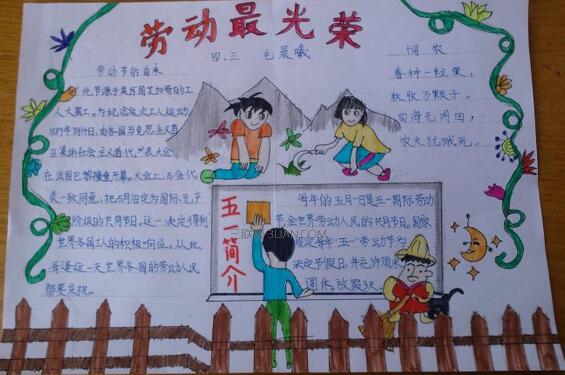 劳动最光荣
四.三 毛晨曦
劳动节的由来
此节源于美国芝加哥的工
人大罢工。为纪念这次工人运动
1889年7月14日,由各国马克思主义者
召集的社会主义者代表大会
在法国巴黎隆重开幕。大会上,与会代
表一致同意:把5月1日定为国际无产
阶级的共同节日。这一决定得到
世界各国工人的积极响应。从此,
每逢这一天世界各国的劳动人民
都要庆祝。
悯农
春种一粒粟,
秋收万颗子。
四海无闲田,
农夫犹饿死。
五一简介
每年的五月一日是五一国际劳动
节,全世界劳动人民的共同节日。国家
规定每年"五一"劳动节为
法定节假日,并允许周末
调休,放假3天。
3LIAN.COM